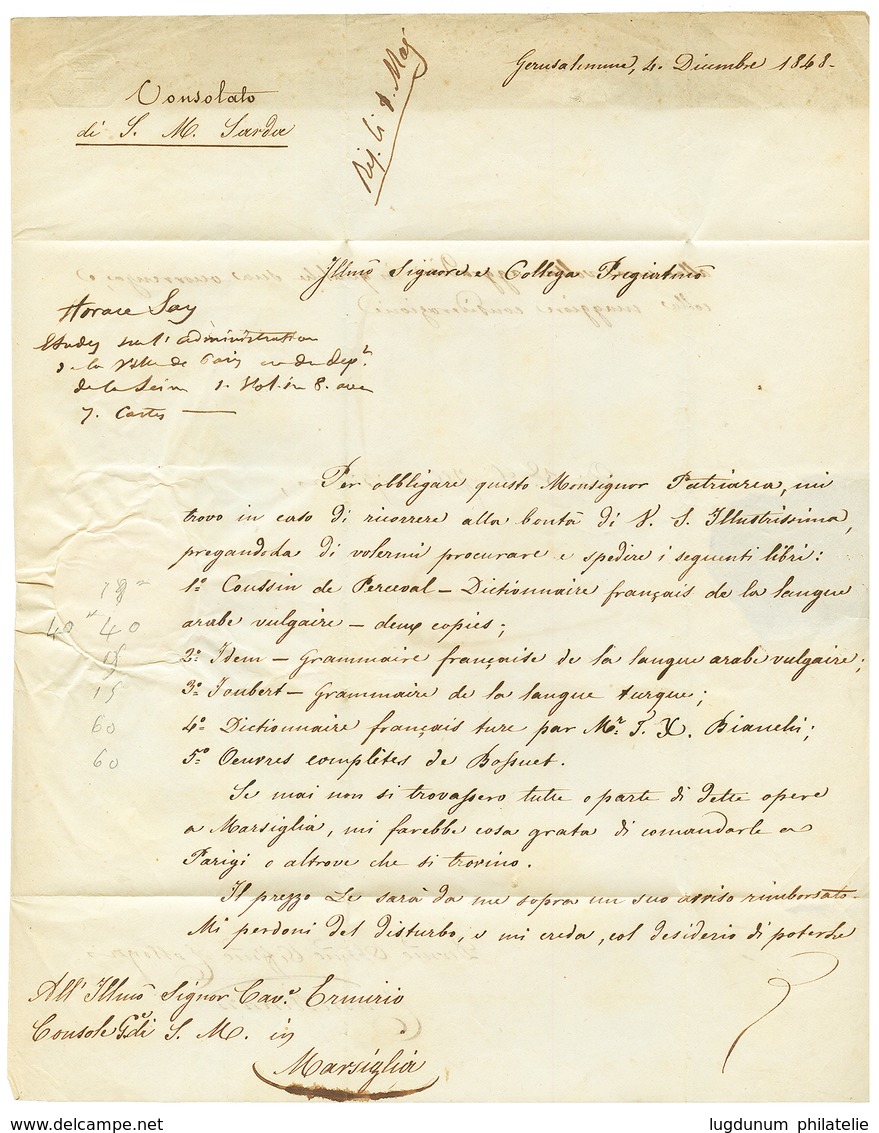 Gerusalemme, 4. Dicembre 1848.
Consolato
di S. M. Sarda
Illmo Signore e Collega Pregiatmo
Horace Say
Etudes sur l'administration
de la Ville de Paris et du Dept.
de la Seine 1. Vol. in 8. avec
7. Cartes
Per obbligare questo Monsignor Patriarca, mi
trovo in caso di ricorrere alla bontà di V. S. Illustrissima,
pregandola di volermi procurare e spedire i seguenti libri:
1º Coussin de Perceval — Dictionnaire français de la langue
arabe vulgaire — deux copies;
40 40
2º Idem — Grammaire française de la langue arabe vulgaire;
15
3º Joubert — Grammaire de la langue turque;
60
4º Dictionnaire français turc par Mr. T. X. Bianchi;
60
5º Oeuvres complètes de Bossuet.
Se mai non si trovassero tutte o parte di dette opere
a Marsiglia, mi farebbe cosa grata di comandarle a
Parigi o altrove che si trovino.
Il prezzo Le sarà da me sopra un suo avviso rimborsato.
Mi perdoni del disturbo, e mi creda, col desiderio di poterle
All' Illmo Signor Cav.e Ermirio
Console Gle di S. M. in
Marsiglia
www.delcampe.net
lugdunum philatelie